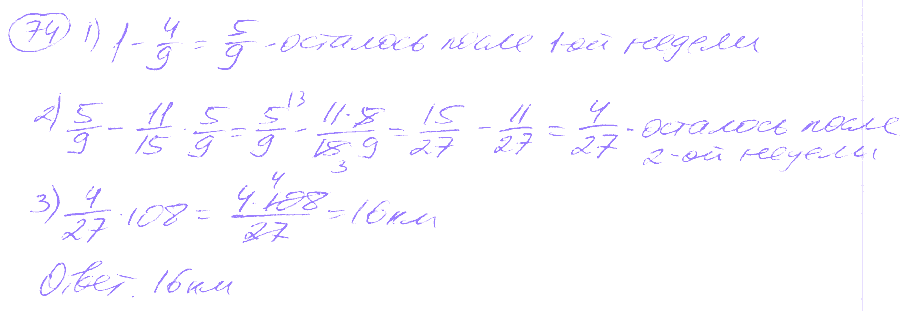 74 1) 1 - 4/9 = 5/9 - осталось после 1-ой недели
2) 5/9 - 11/15 · 5/9 = 5/9 |3 - 11·5/15 3 · 9 = 15/27 - 11/27 = 4/27 - осталось после
2-ой недели
3) 4/27 · 108 = 4·108 4/27 = 16 км
Ответ. 16 км